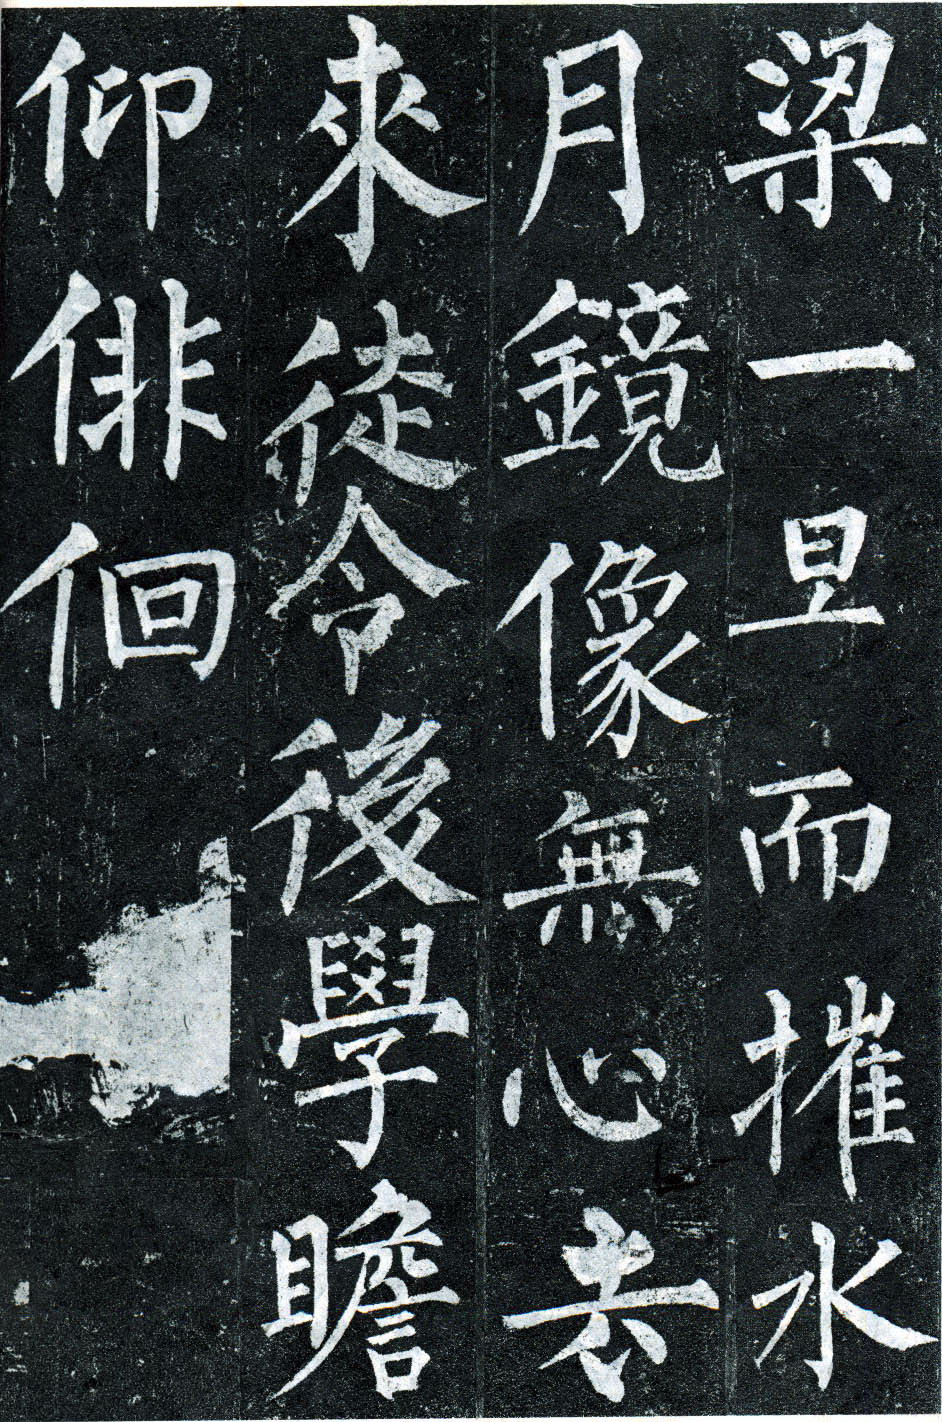 梁一旦而摧水
月鏡像無心去
來徒令後學瞻
仰徘徊